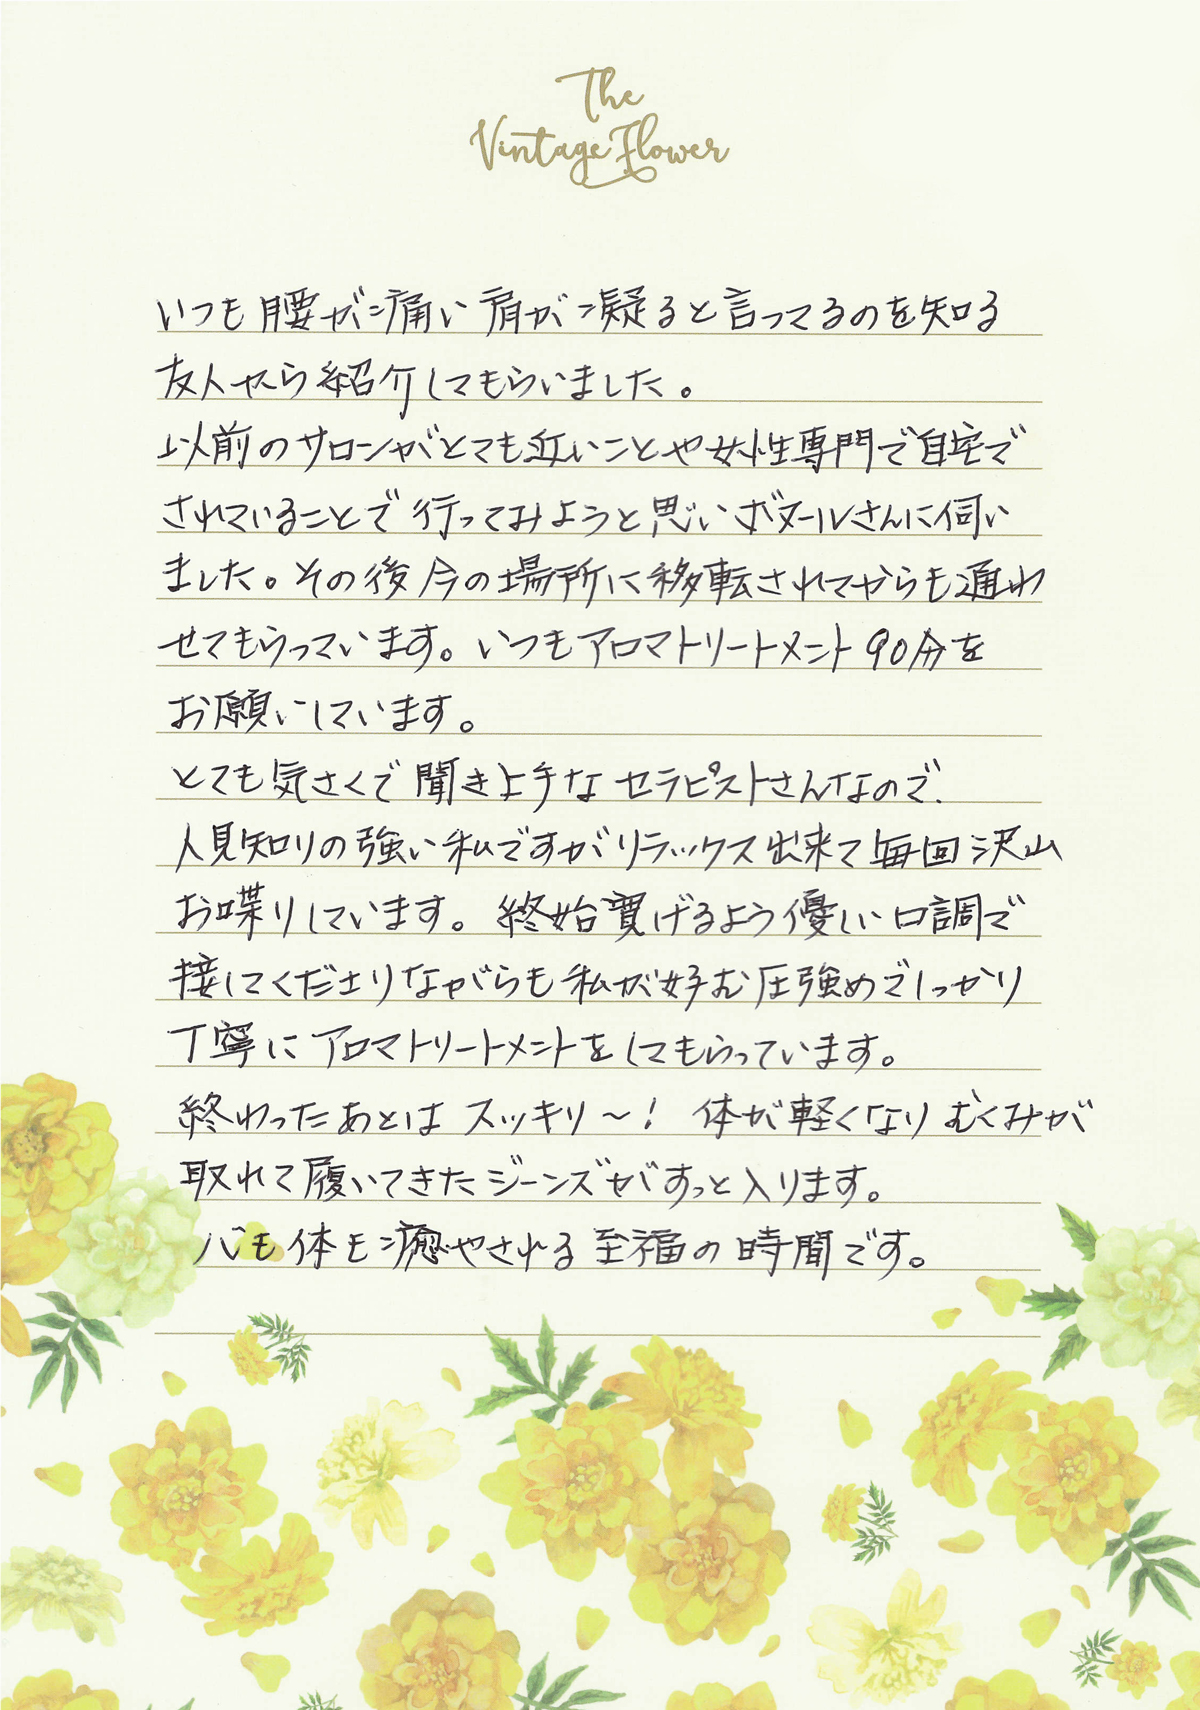 The
Vintage Flower
いつも腰が痛い肩が凝ると言ってるのを知る
友人から紹介してもらいました。
以前のサロンがとても近いことや女性専門で自宅で
されていることで行ってみようと思いボヌールさんに伺い
ました。その後今の場所に移転されてからも通わ
せてもらっています。いつもアロマトリートメント90分を
お願いしています。
とても気さくで聞き上手なセラピストさんなので、
人見知りの強い私ですがリラックス出来て毎回沢山
お喋りしています。終始寛げるよう優しい口調で
接してくださりながらも私が好む圧強めでしっかり
丁寧にアロマトリートメントをしてもらっています。
終わったあとはスッキリ〜！ 体が軽くなりむくみが
取れて履いてきたジーンズがすっと入ります。
心も体も癒やされる至福の時間です。